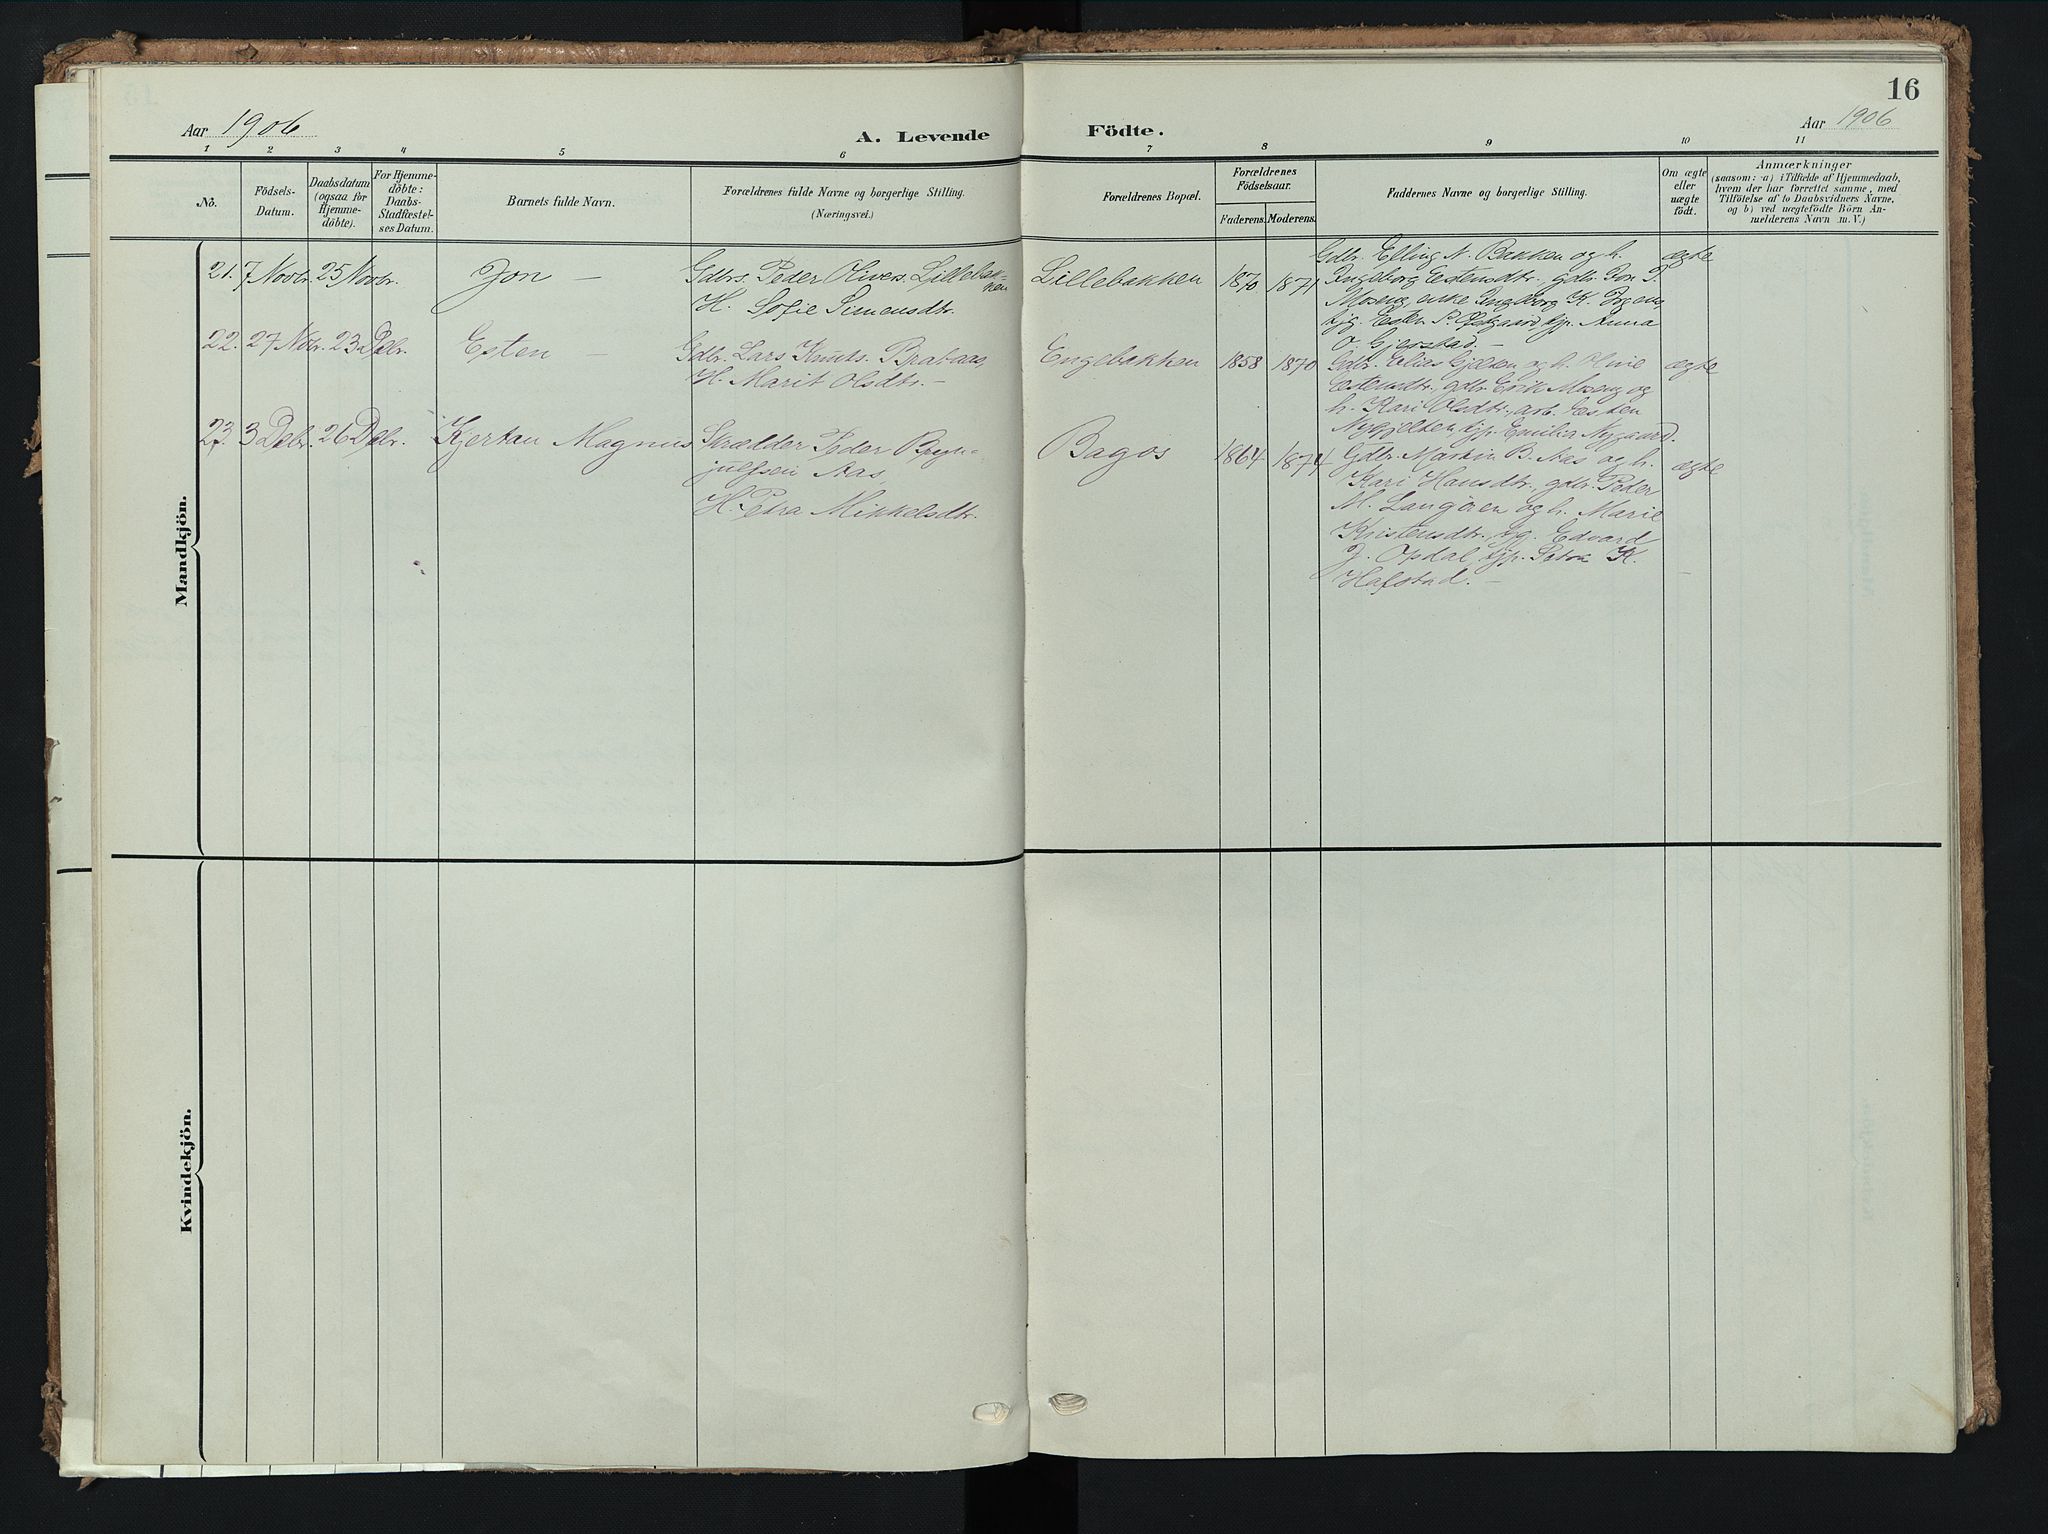 16
Aar 1906
A. Levende Födte.
Aar 1906
1 2 3 4 5 6 7 8 9 10 11
No.
Födsels-Datum.
Daabsdatum (ogsaa for Hjemme-döbte).
For Hjemme-döbte: Daabs-Stadfæstel-ses Datum.
Barnets fulde Navn.
Forældrenes fulde Navne og borgerlige Stilling.
(Næringsvei.)
Forældrenes Bopæl.
Forældrenes Födselsaar.
Faderens. Moderens.
Faddernes Navne og borgerlige Stilling.
Om ægte eller uægte födt.
Anmærkninger
(saasom: a) i Tilfælde af Hjemmedaab,
hvem der har forrettet samme, med
Tilföielse af to Daabsvidners Navne,
og b) ved uægtefödte Börn An-
melderens Navn m. V.)
Mandkjön.
21. 7 Novbr. 25 Novbr. Jon —
Gdbrs. Peder Olivers. Lillebak-
ken
H. Sofie Simensdtr.
Lillebakken 1870 1871
Gdbr. Elling N. Bakken og h.
Ingeborg Estensdtr. gdbr. Jon P.
Moseng, enke Ingeborg K.
tjg. Esten P. Østgaard, tjp. Anna
O. Gjerstad. —
ægte
22. 27 Nobr. 23 Debr. Esten —
Gdbr. Lars Knuts. Brataas,
H. Marit Olsdtr. —
Engebakken 1858 1870
Gdbr. Elias Gjelten og h. Oline
Estensdtr., gdbr. Erik Moseng og
h. Kari Olsdtr., arb. Esten
Nygjelten, tjp. Emilie Nygaard.
ægte
23. 3 Debr. 26 Debr. Kjertan Magnus
Skrædder Peder Bryn-
julfsen Aas,
H. Petra Mikkelsdtr.
Bagos 1864 1874
Gdbr. Martin B. Aas og h.
Kari Hansdtr., gdbr. Peder
M. Langören og h. Marie
Kristensdtr., ug. Edvard
J. Opdal, tjp. K.
Hafstad. —
ægte
Kvindekjön.